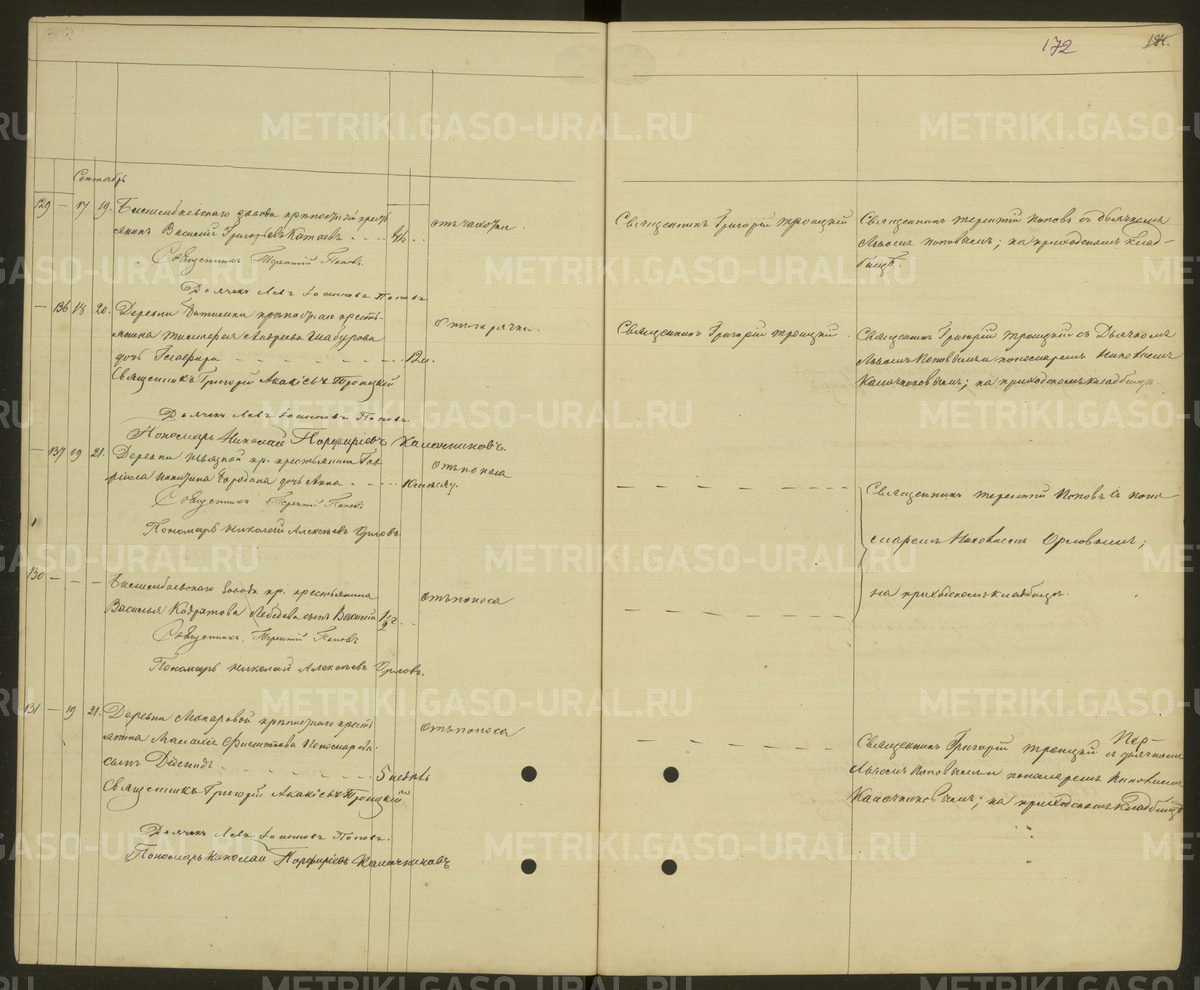 172
184.
Сентябрь
129 — 17 19. Билимбаевскаго завода крѣпостный кресть
янинъ Василій Григорьевъ Катаевъ
отъ чахотки.
Священникъ Григорій Троицкій
Священникъ Терентій Поповъ съ дьячкомъ
Львомъ Поповымъ; на приходскомъ клад-
бищѣ.
Священникъ Терентій Поповъ.
Дьячекъ Левъ Іоанновъ Поповъ
— 136 18 20. Деревни крѣпостнаго кресть-
янина Андреева
дочь Глафира 12 н.
отъ горячки.
Священникъ Григорій Троицкій.
Священникъ Григорій Троицкій съ Дьячкомъ
Львомъ Поповымъ и пономаремъ Николаемъ
Калачниковымъ; на приходскомъ кладбищѣ.
Священникъ Григорій Анакіевъ Троицкій
Дьячекъ Левъ Іоанновъ Поповъ.
Пономарь Николай Порфиріевъ Калачниковъ.
— 137 19 21. Деревни кр. крестьянина Гав
ріила дочь Анна
отъ поноса
Священникъ Терентій Поповъ съ поно
маремъ Николаемъ Орловымъ;
на приходскомъ кладбищѣ.
Священникъ Терентій Поповъ
Пономарь Николай Алексѣевъ Орловъ.
130 — — — Билимбаевскаго завода кр. крестьянина
Василья Лебедева сынъ 1/2 г.
отъ поноса
Священникъ Терентій Поповъ
Пономарь Николай Алексѣевъ Орловъ.
131 — 19 21. Деревни Макаровой крѣпостнаго кресть
янина Пономарева
сынъ 5 недѣль
отъ поноса
Священникъ Григорій Троицкій съ дьячкомъ
Львомъ Поповымъ и пономаремъ Николаемъ
Калачниковымъ; на приходскомъ кладбищѣ
Священникъ Григорій Анакіевъ Троицкій
Дьячекъ Левъ Іоанновъ Поповъ.
Пономарь Николай Порфиріевъ Калачниковъ
METRIKI.GASO-URAL.RU